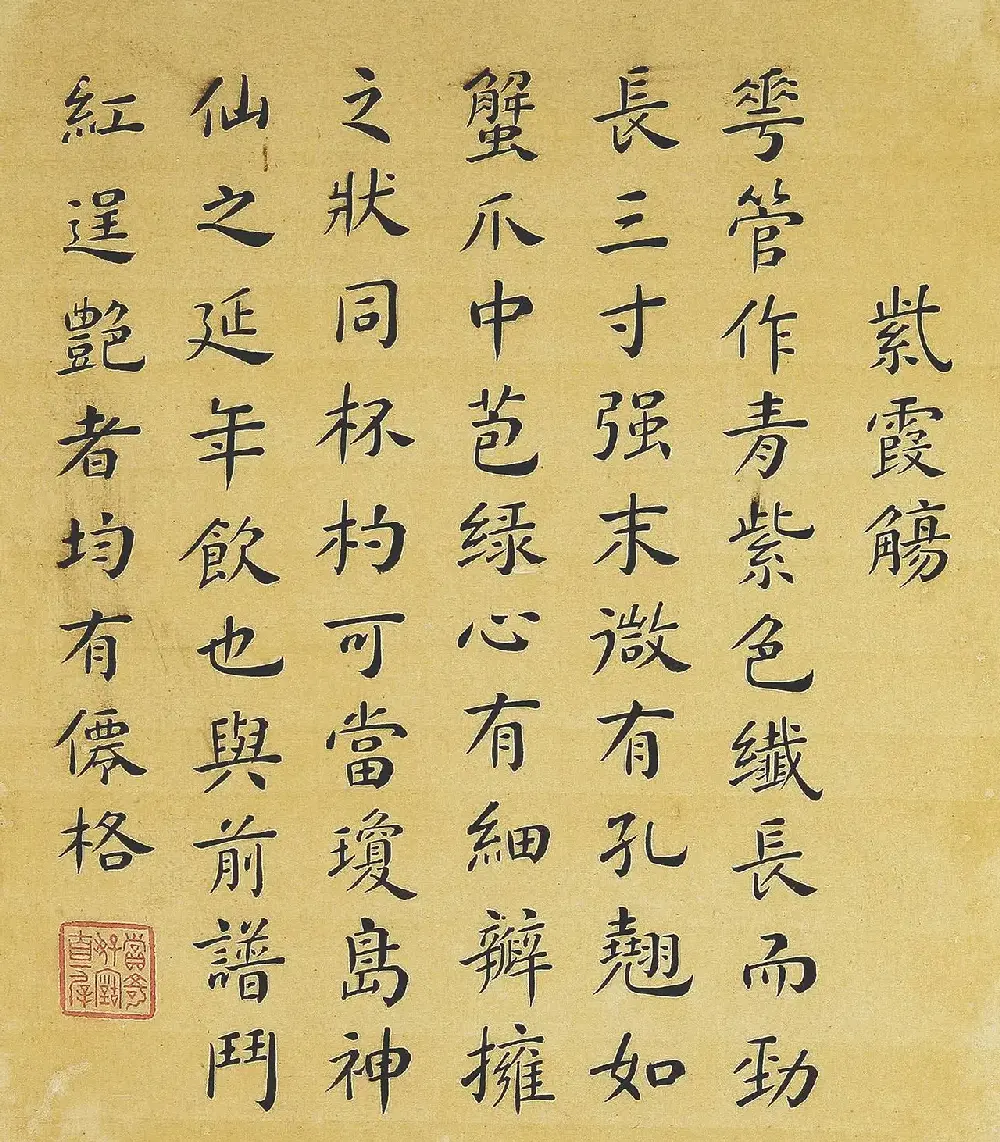 紫霞觴
華管作青紫色纖長而勁
長三寸强末微有孔翹如
蟹爪中苞緑心有細瓣擁
之狀同杯杓可當瓊島神
仙之延年飲也與前譜鬥
紅逞艷者均有僊格